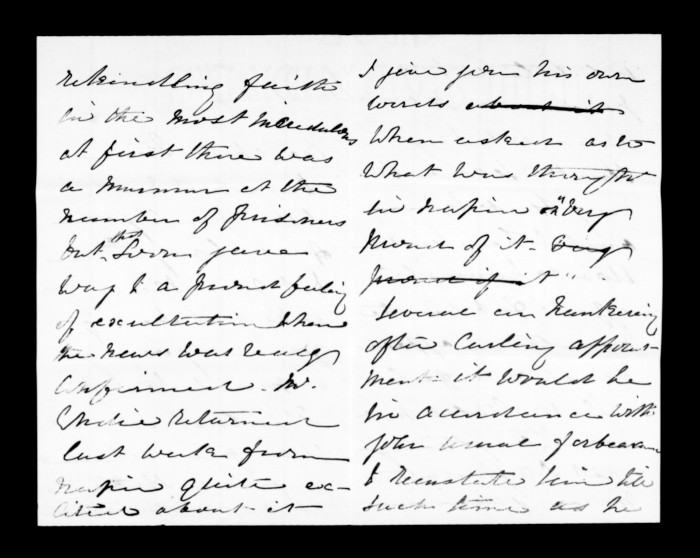 rekindling faith
in the most incredulous
at first there was
a murmur at the
number of prisoners
but that soon gave
way to a proud feeling
of exultation when
the news was really
confirmed. Mr.
returned
last week from
Napier quite ex-
cited about it
I give you his own
words about it
When asked as to
what was thought
in Napier "Very
proud of it - Very
proud of it".
Several are hankering
after Carling appoint-
ment - it would be
in accordance with
your usual forbearance
to reinstate him till
such time as he